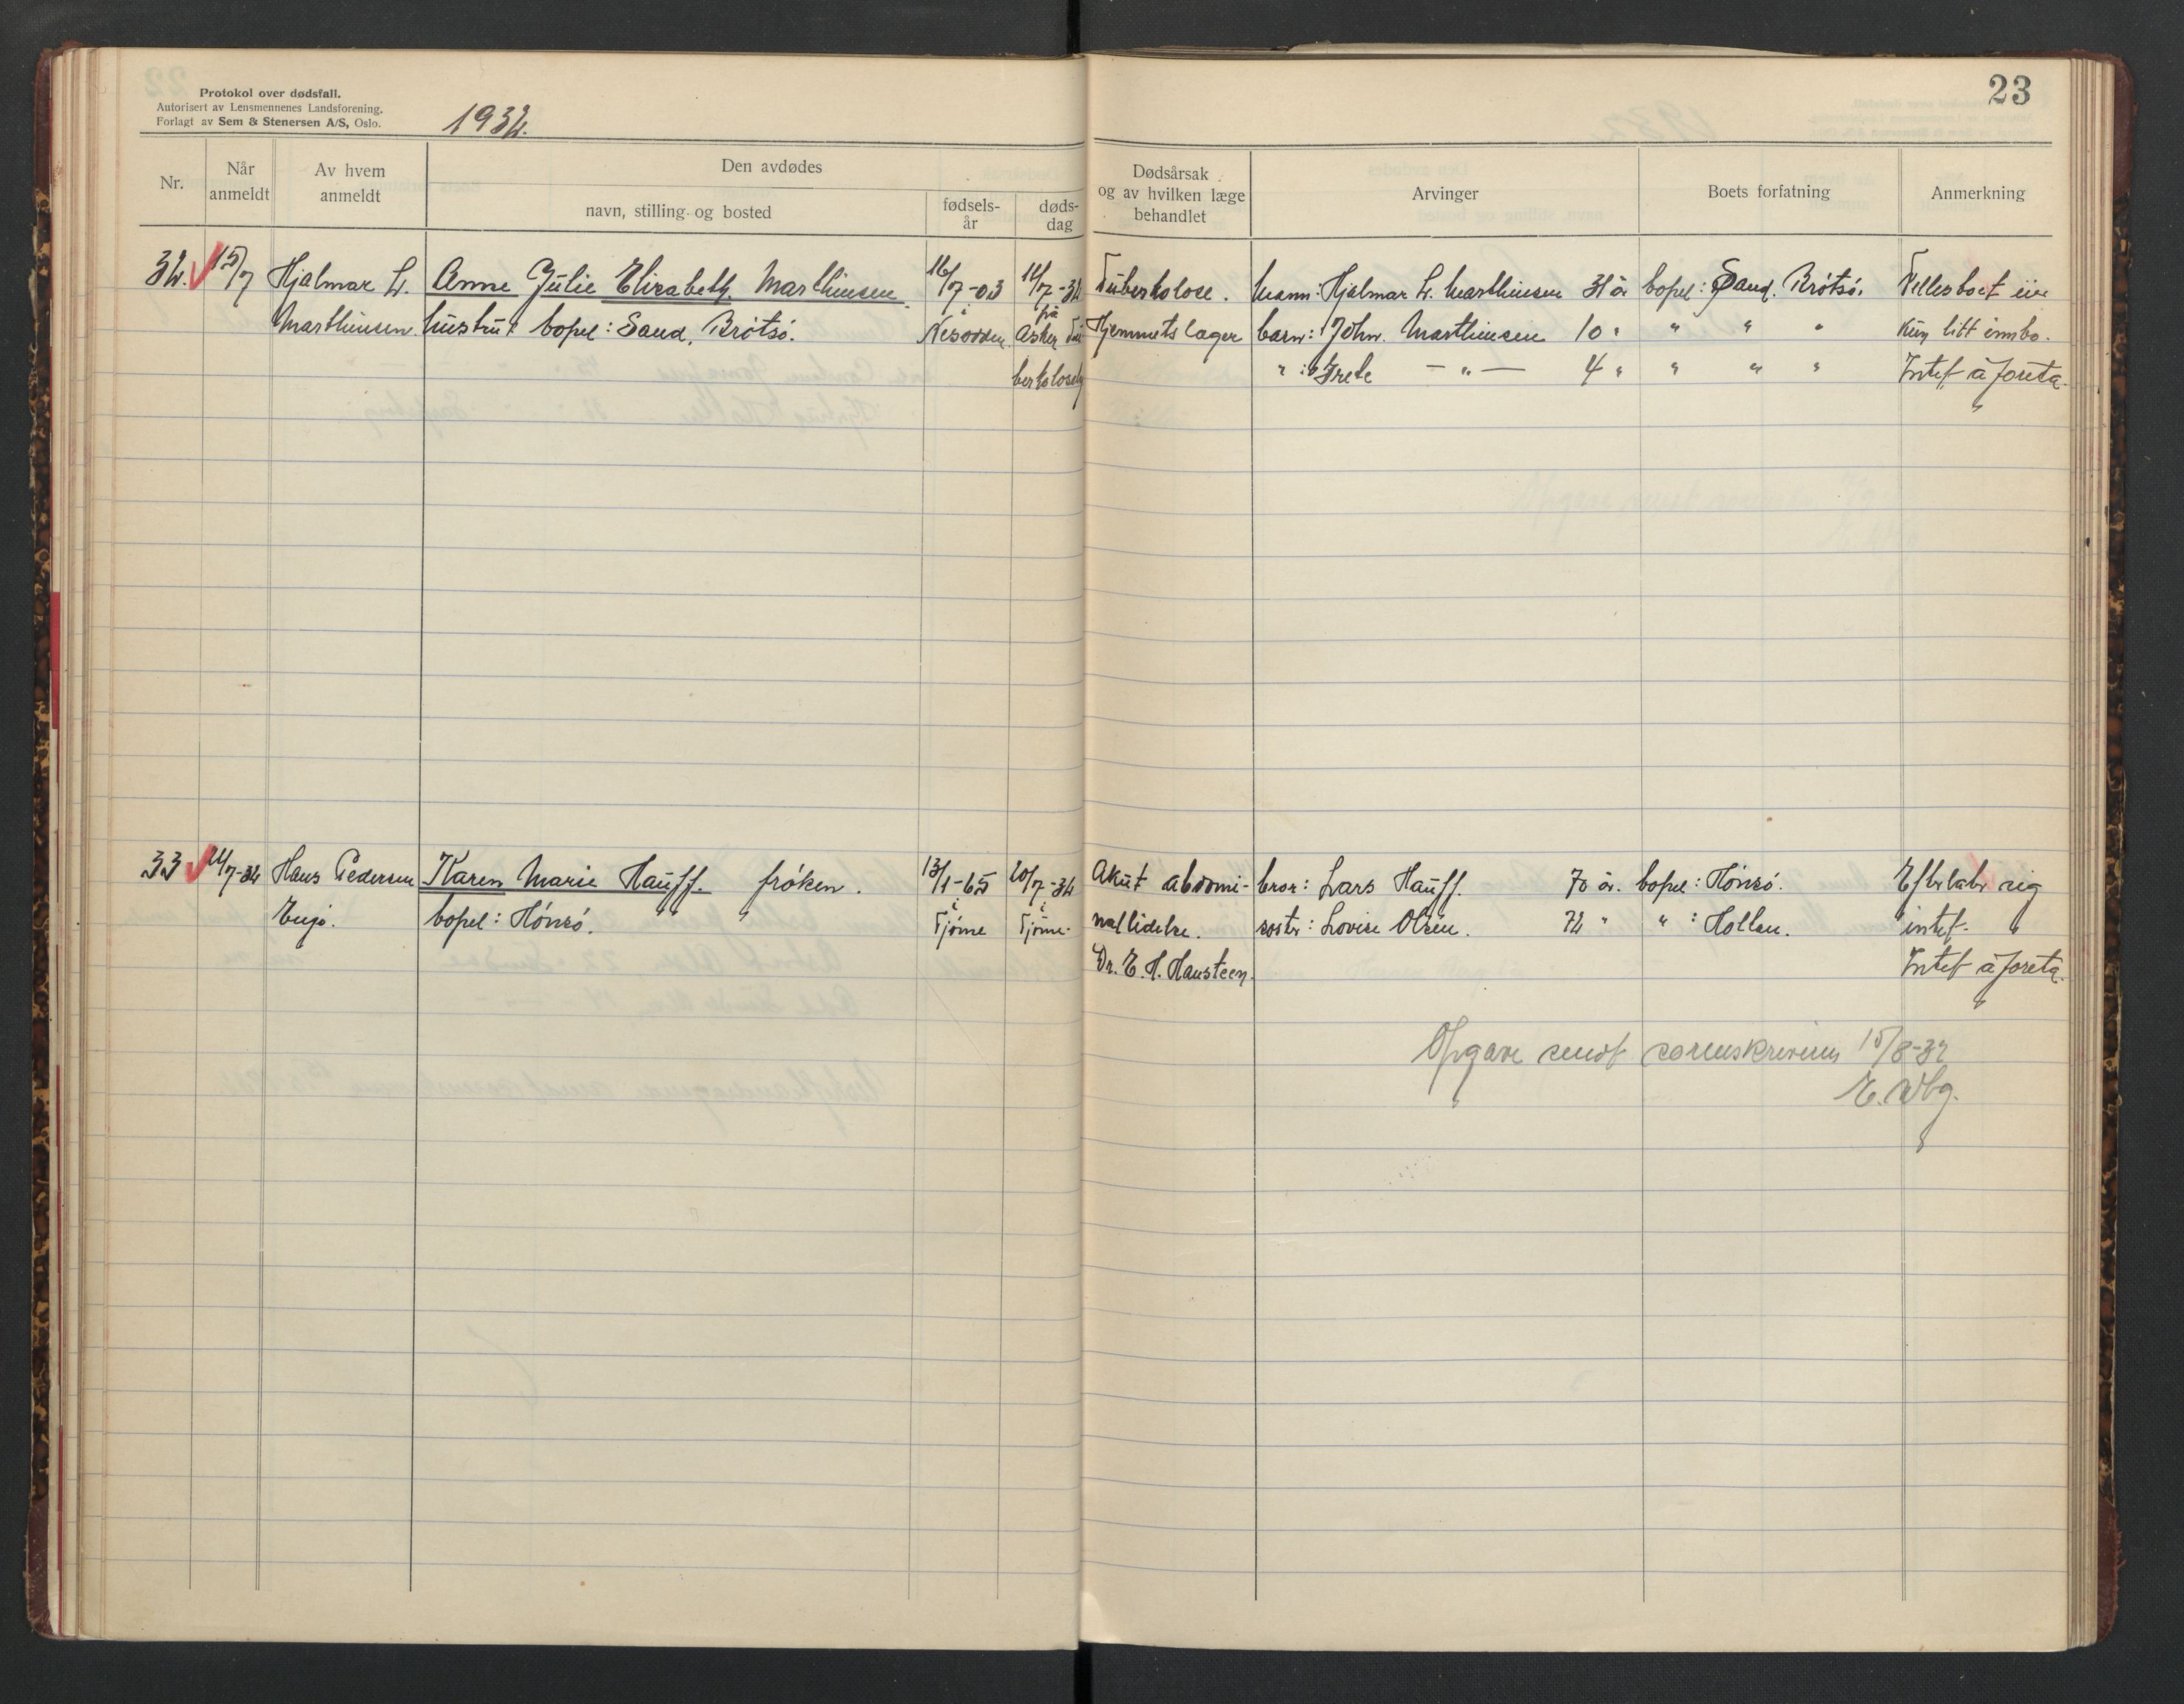 Protokol over dødsfall.
Autorisert av Lensmennenes Landsforening.
Forlagt av Sem & Stenersen A/S, Oslo.
1932.
23
Nr.
Når anmeldt
Av hvem anmeldt
Den avdødes
navn, stilling og bosted
fødsels-år
døds-dag
Dødsårsak og av hvilken læge behandlet
Arvinger
Boets forfatning
Anmerkning
32. 15/7 Hjalmar L. Anne Julie Elisabeth Marthinsen. 16/7-03 14/7-32 Tuberkolose. Mann: Hjalmar L. Marthinsen 31 år bopel: Sand, Brøtsø. Fellesboet eier
Marthinsen. hustru bopel: Sand, Brøtsø. i Nesodden på Asker Tu- Hjemmets læger barn: John Marthinsen 10 " " " " kun litt innbo.
berkolosehj " : Grete — " — 4 " " " " Intet å foreta.
33 21/7-32 Hans Pedersen Karen Marie Hauff. frøken. 13/1-65 20/7-32 Akut abdomi- bror: Lars Hauff. 70 år. bopel: Hönsö. Efterlater sig
Engø. bopel: Hönsö. i Tjøme i Tjøme. nallidelse. søster: Lovise Olsen. 72 " " : Hollen. intet.
Dr. E. H. Hansteen. Intet å foreta.
Opgave sendt sorenskriveren 15/8-32
E. Wbg.